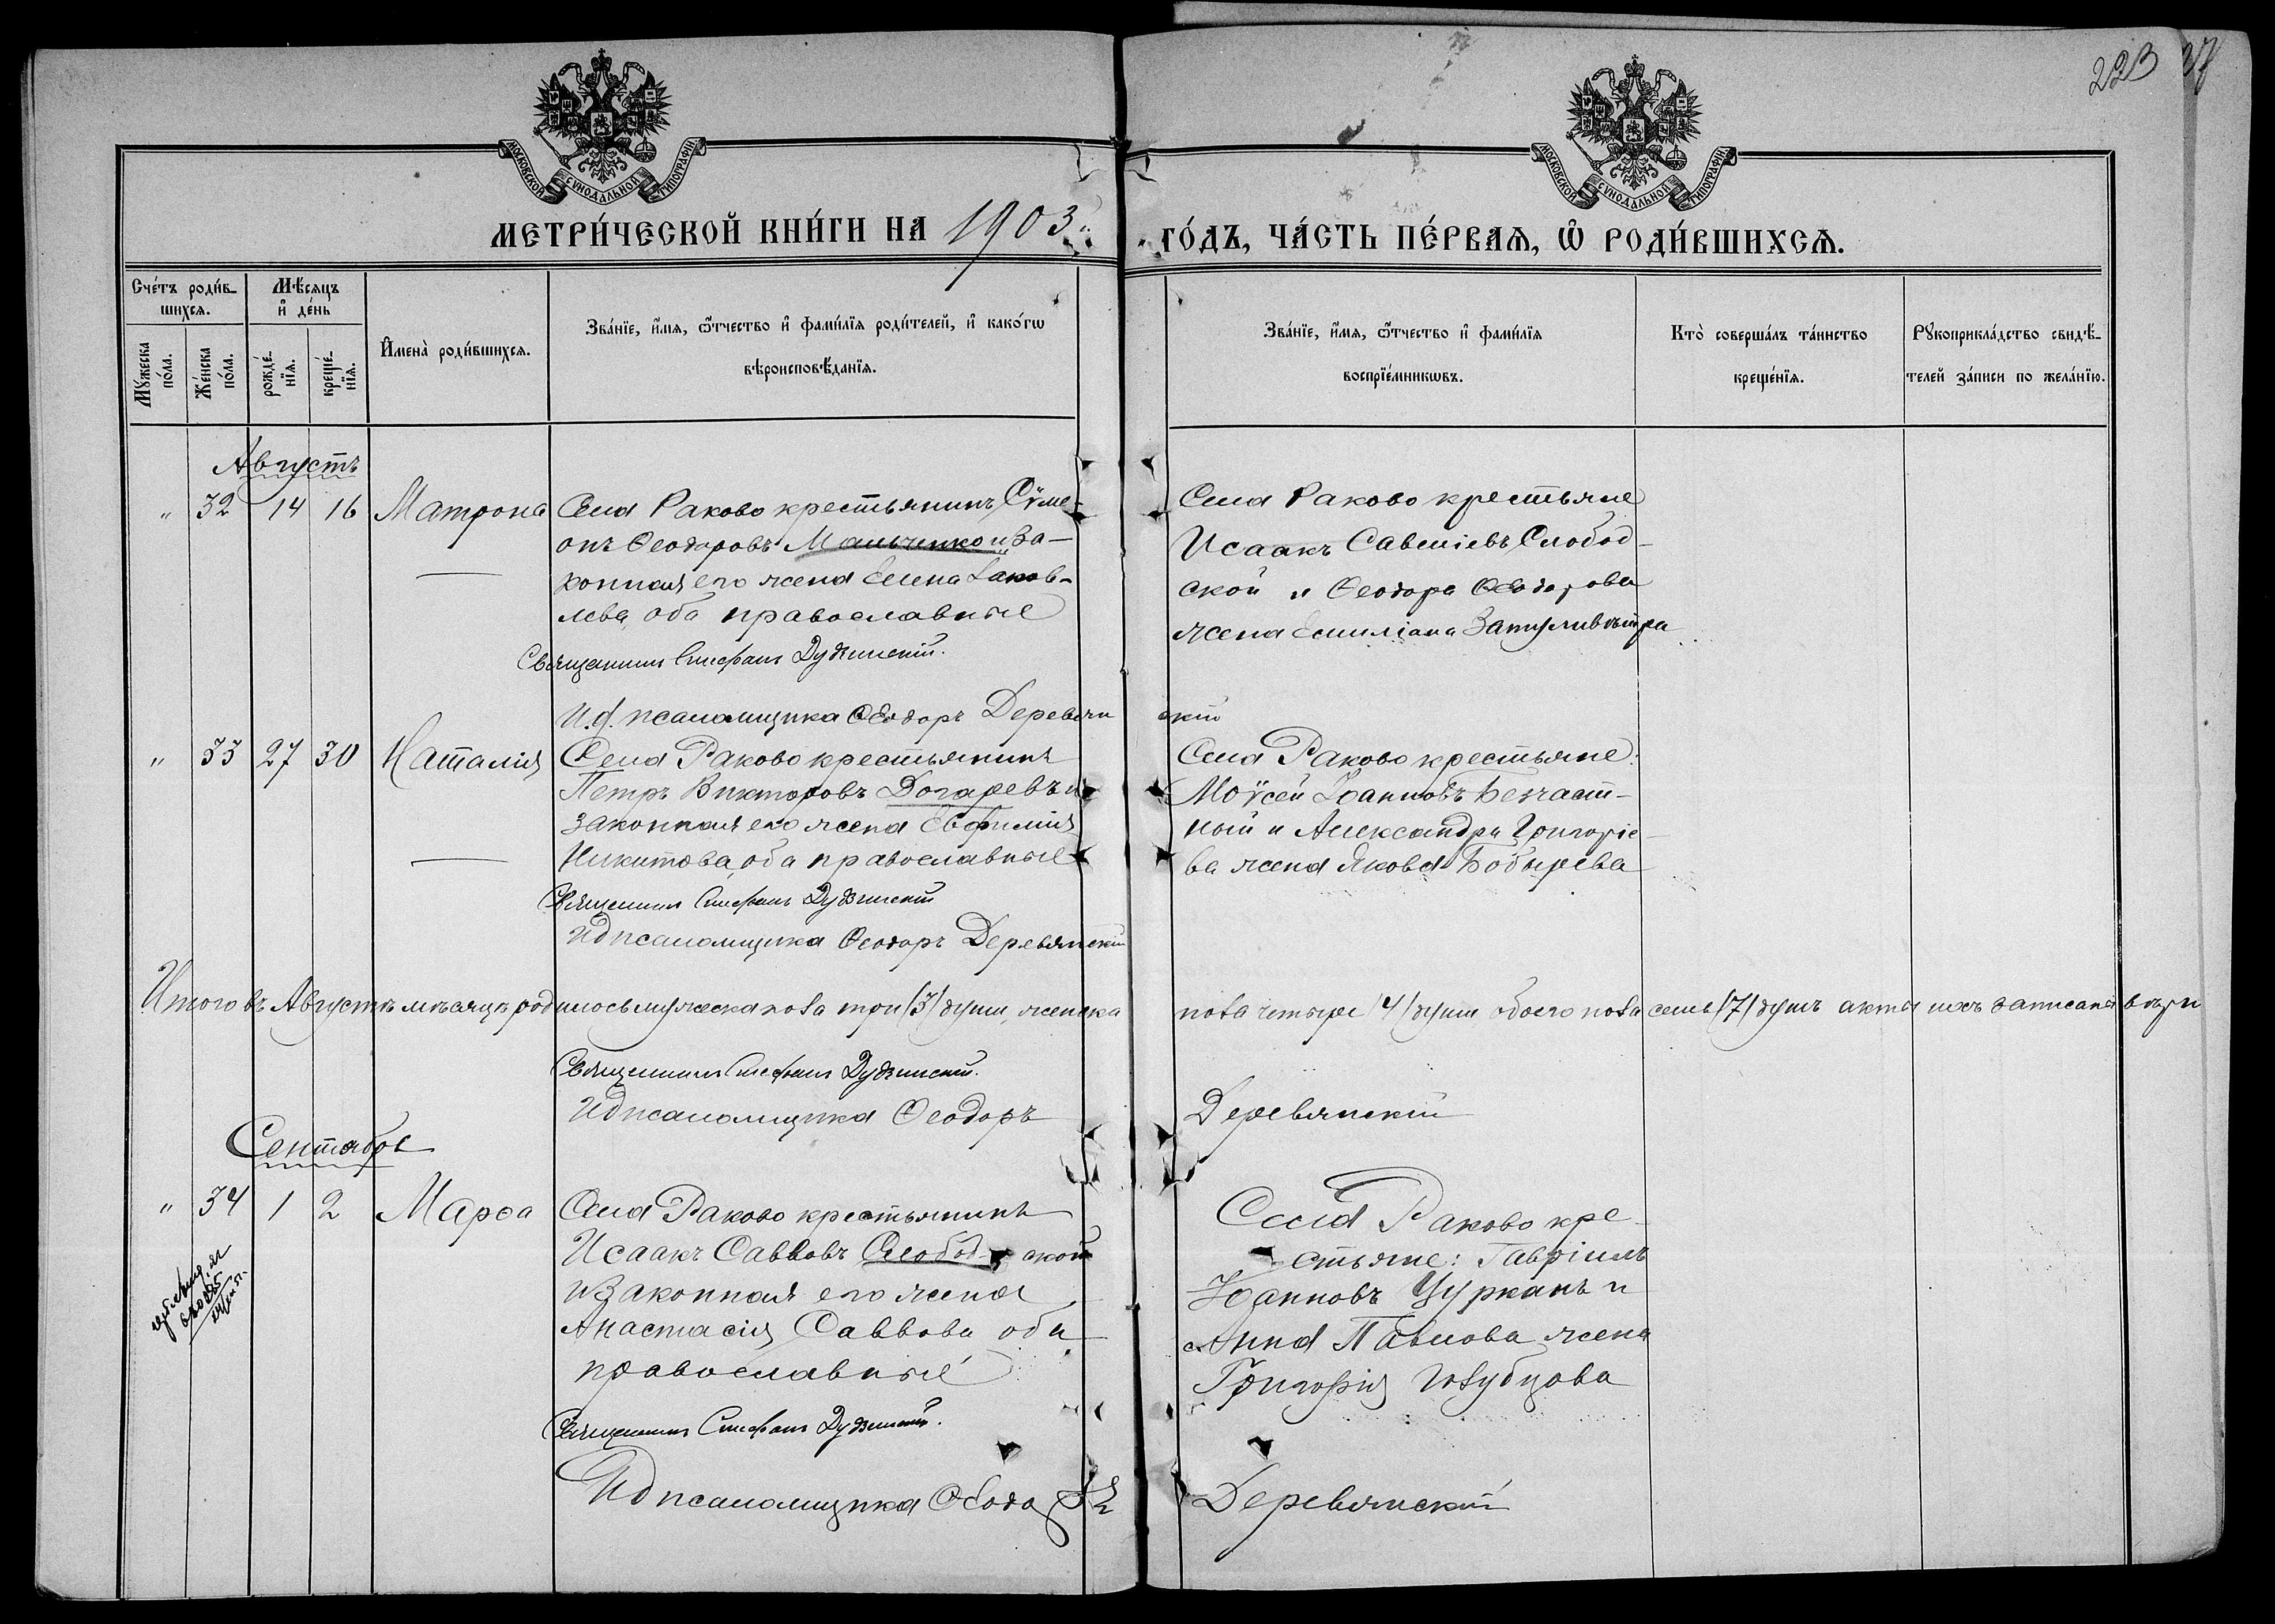 223
МОСКОВСКОЙ СѴНОДАЛЬНОЙ ТИПОГРАФІИ
МОСКОВСКОЙ СѴНОДАЛЬНОЙ ТИПОГРАФІИ
МЕТРИ́ЧЕСКОЙ КНИ́ГИ НА 1903 ГО́ДЪ, ЧА́СТЬ ПЕ́РВАѦ, Ѡ҆ РОДИ́ВШИХСѦ.
Сче́тъ роди́в-
шихсѧ.
Мꙋ́жеска по́ла.
Же́нска по́ла.
Мѣ́сѧцъ
и҆ де́нь
рожде́-
нїѧ.
креще́-
нїѧ.
И҆мена̀ роди́вшихсѧ.
Зва́нїе, и҆́мѧ, ѻ҆́тчество и҆ фами́лїѧ роди́телей, и҆ како́гѡ
вѣроисповѣ́данїѧ.
Зва́нїе, и҆́мѧ, ѻ҆́тчество и҆ фами́лїѧ
воспрїе́мникѡвъ.
Кто̀ соверша́лъ та́инство
креще́нїѧ.
Рꙋкоприкла́дство свидѣ́-
телей за́писи по жела́нїю.
Августъ
" 32 14 16 Матрона
Села Раково крестьянинъ Сѵме-
онъ Ѳеодоровъ Мальченко и за-
конная его жена Елена Іаков-
лева, оба православные
Священникъ Стефанъ Дудзинскій.
И.д. псаломщика Ѳеодоръ Деревянскій
Села Раково крестьяне
Исаакъ Савеліевъ Слобод-
ской и Ѳеодора Ѳеодорова
жена Емиліана
" 33 27 30 Наталія
Села Раково крестьянинъ
Петръ Викторовъ Догаревъ и
законная его жена Евфимія
Никитова, оба православные
Священникъ Стефанъ Дудзинскій
И д псаломщика Ѳеодоръ Деревянскій
Села Раково крестьяне:
Моѵсей Іоанновъ Безчаст-
ный и Александра Григоріе-
ва жена Якова Бобырева
Итого въ Августѣ мѣсяцѣ родилось мужеска пола три (3) души, женска пола четыре (4) души обоего пола семь (7) душъ акты ихъ записаны вѣрн
Священникъ Стефанъ Дудзинскій.
И д псаломщика Ѳеодоръ Деревянскій
Сентябрь
" 34 1 2 Марѳа
Села Раково крестьянинъ
Исаакъ Савовъ Слободской
и законная его жена
Анастасія Саввова оба
православные
Священникъ Стефанъ Дудзинскій.
И д псаломщика Ѳеодоръ Деревянскій
Села Раково кре-
стьяне: Гавріилъ
Іоанновъ Цурканъ и
Анна Павлова жена
Григорія Голубцова